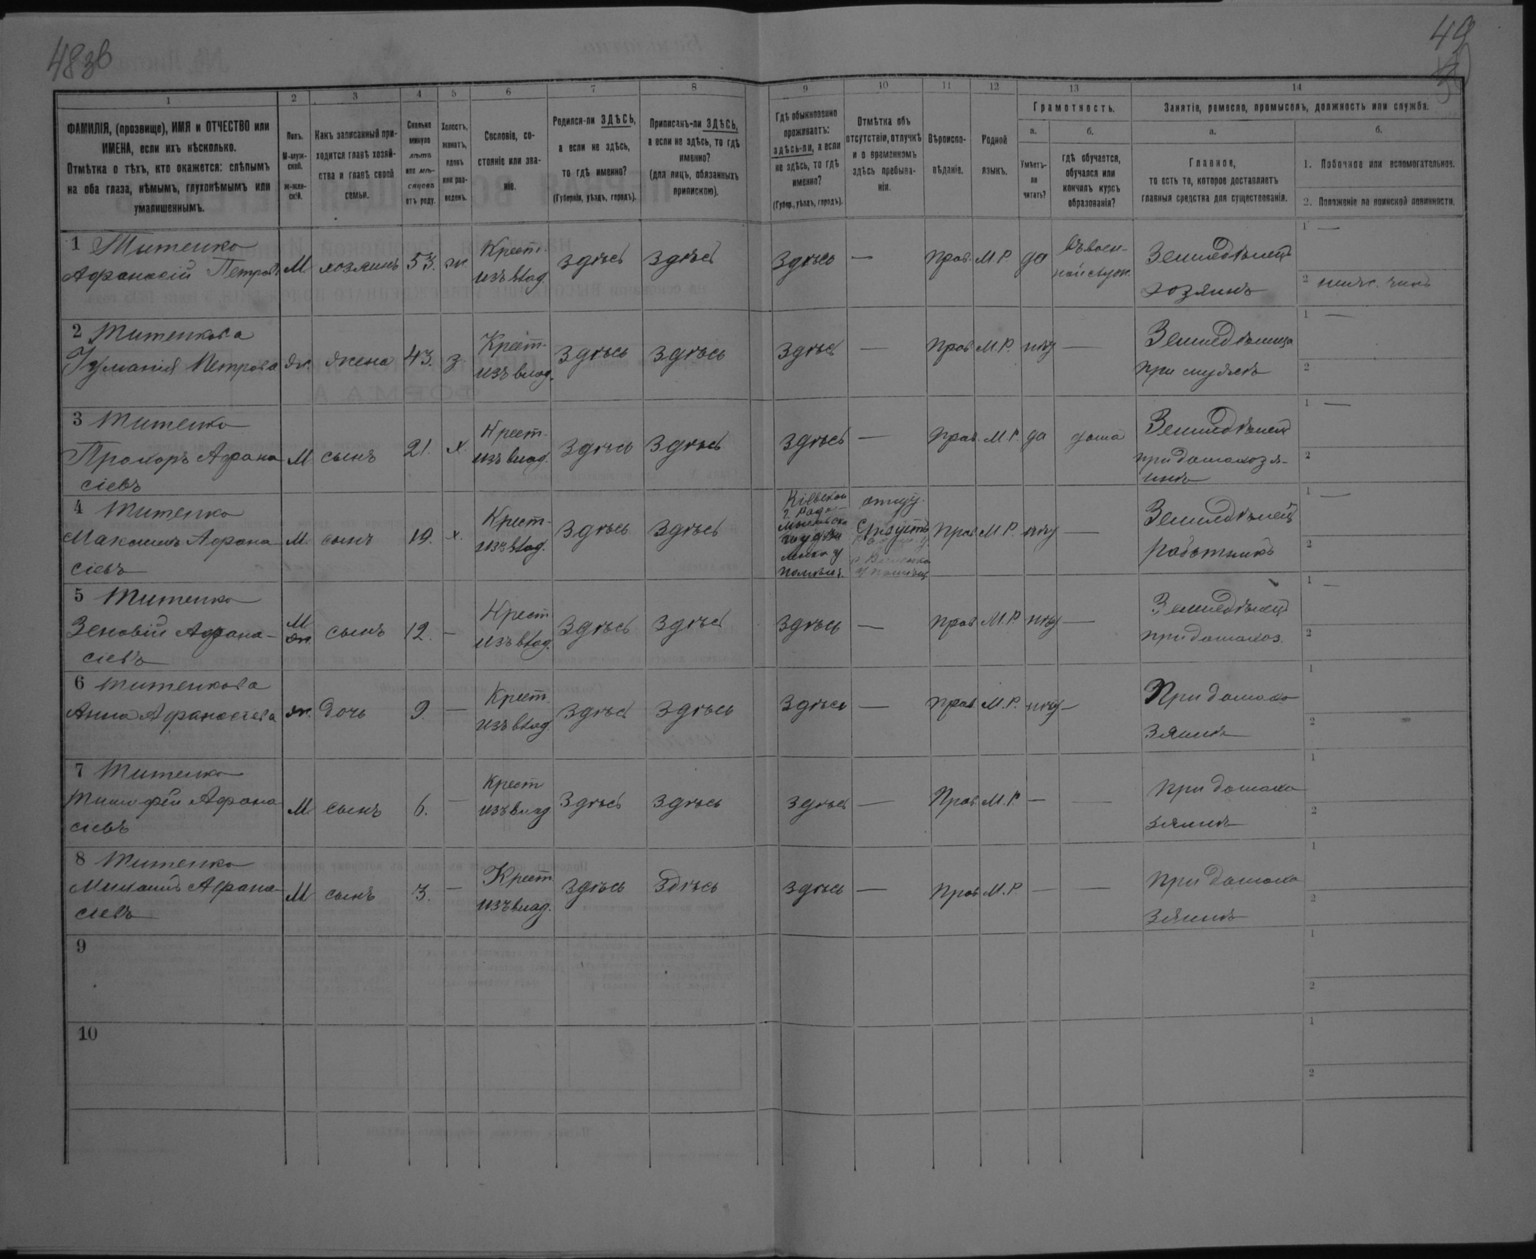 48 зв
49
1
2
3
4
5
6
7
8
9
10
11
12
13
14
ФАМИЛІЯ, (прозвище), ИМЯ и ОТЧЕСТВО или
ИМЕНА, если ихъ нѣсколько.
Отмѣтка о тѣхъ, кто окажется: слѣпымъ
на оба глаза, нѣмымъ, глухонѣмымъ или
умалишеннымъ.
Полъ.
М-мужской.
Ж-женскій.
Какъ записанный при-
ходится главѣ хозяй-
ства и главѣ своей
семьи.
Сколько
минуло
лѣтъ
или мѣ-
сяцевъ
отъ роду.
Холостъ,
женатъ,
вдовъ
или раз-
веденъ.
Сословіе, со-
стояніе или зва-
ніе.
Родился-ли ЗДѢСЬ,
а если не здѣсь,
то гдѣ именно?
(Губернія, уѣздъ, городъ).
Приписанъ-ли ЗДѢСЬ,
а если не здѣсь, то гдѣ
именно?
(для лицъ, обязанныхъ
припискою).
Гдѣ обыкновенно
проживаетъ:
здѣсь-ли, а если
не здѣсь, то гдѣ
именно?
(Губер., уѣздъ, городъ).
Отмѣтка объ
отсутствіи, отлучкѣ
и о временномъ
здѣсь пребыва-
ніи.
Вѣроиспо-
вѣданіе.
Родной
языкъ.
Грамотность.
а.
Умѣетъ-
ли
читать?
б.
гдѣ обучается,
обучался или
кончилъ курсъ
образованія?
Занятіе, ремесло, промыселъ, должность или служба.
а.
Главное,
то есть то, которое доставляетъ
главныя средства для существованія.
б.
1. Побочное или вспомогательное.
2. Положеніе по воинской повинности.
1 Титенко
Афанасій Петровъ М хозяинъ 53. ж Крест. изъ влад. здѣсь здѣсь здѣсь — Прав М.Р. да Земледѣлецъ хозяинъ
1 —
2
2 Титенкова
Петрова ж. жена 43. з Крест. изъ влад. здѣсь здѣсь здѣсь — Прав М.Р. нѣт — Земледѣлица при мужѣ
1 —
2
3 Титенко
Прохоръ Афана
сіевъ М сынъ 21. х. Крест. изъ влад. здѣсь здѣсь здѣсь — Прав М.Р. да дома Земледѣлецъ
1 —
2
4 Титенко
Максимъ Афана
сіевъ М. сынъ 19. х. Крест. изъ влад. здѣсь здѣсь Прав М.Р. нѣт — Земледѣлецъ работникъ
1 —
2
5 Титенко
Зеновій Афана-
сіевъ М сынъ 12. — Крест. изъ влад. здѣсь здѣсь здѣсь — Прав М.Р. нѣт — Земледѣлецъ
1 —
2
6 Титенкова
Анна Афанасіева ж. дочь 9. — Крест. изъ влад. здѣсь здѣсь здѣсь — Прав М.Р. нѣт — При домохо
зяинѣ
1
2
7 Титенко
Тимофей Афана
сіевъ М сынъ 6. — Крест изъ влад здѣсь здѣсь здѣсь — Прав М.Р. — — При домохо
зяинѣ
1
2
8 Титенко
Михаилъ Афана
сіевъ М сынъ 3. — Крест изъ влад. здѣсь здѣсь здѣсь — Прав М.Р. — — При домохо
зяинѣ
1
2
9
1
2
10
1
2